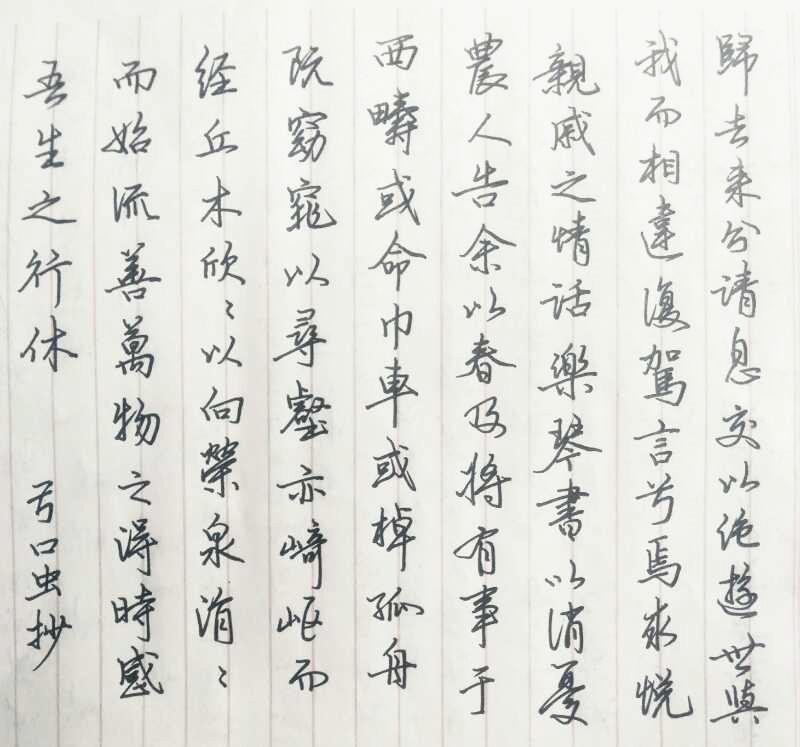 歸去来兮请息交以绝遊世與
我而相違復駕言兮焉求悦
親戚之情話樂琴書以消憂
農人告余以春及将有事于
西疇或命巾車或棹孤舟
既窈窕以尋壑亦崎岖而
经丘木欣〻以向榮泉涓〻
而始流善萬物之得時感
吾生之行休 口虫抄